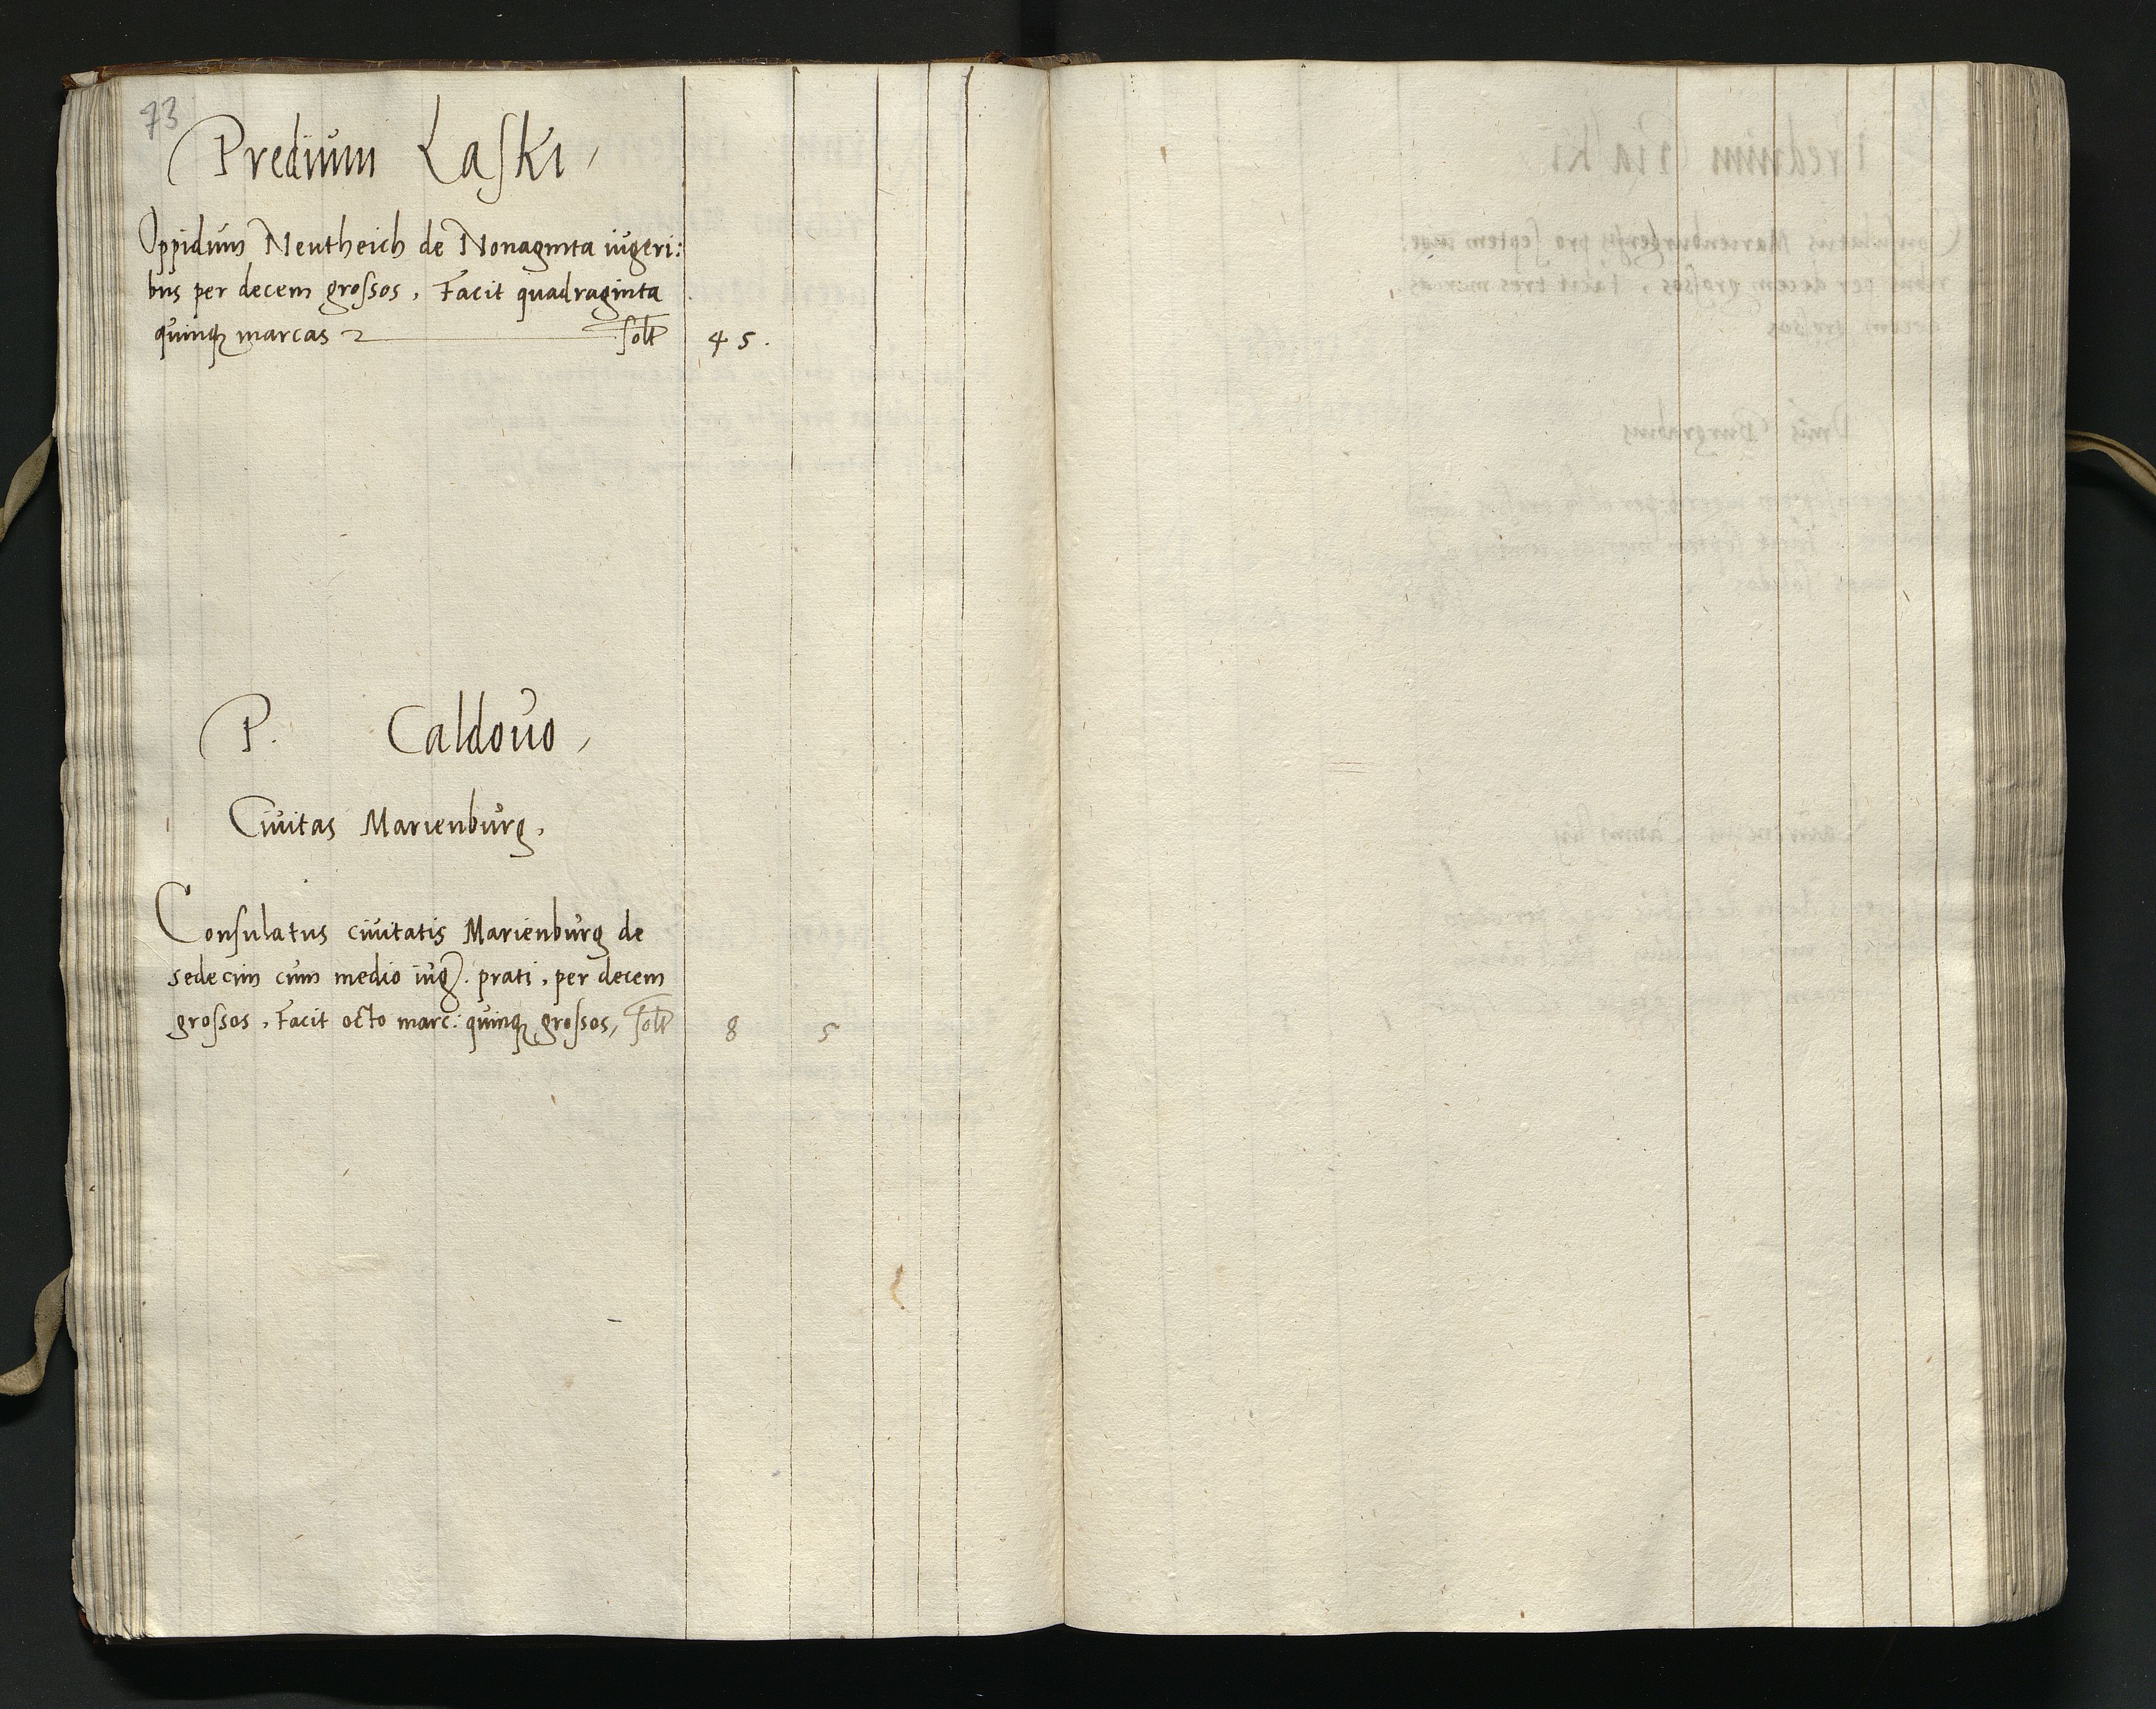 73
Predium Laski,
Oppidum Neutheich de Nonaginta iugeri:
bus per decem grossos, Facit quadraginta
quinq marcas solt 45.
P. Caldovo,
Civitas Marienburg,
Consulatus civitatis Marienburg de
sedecim cum medio iug. prati, per decem
grossos, Facit octo marc: quinq grossos, solt 8 5